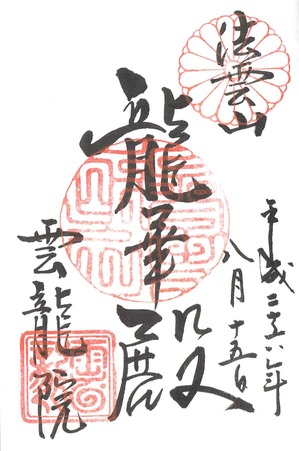 法雲山
平成二十六年
八月十五日
龍華殿
雲龍院